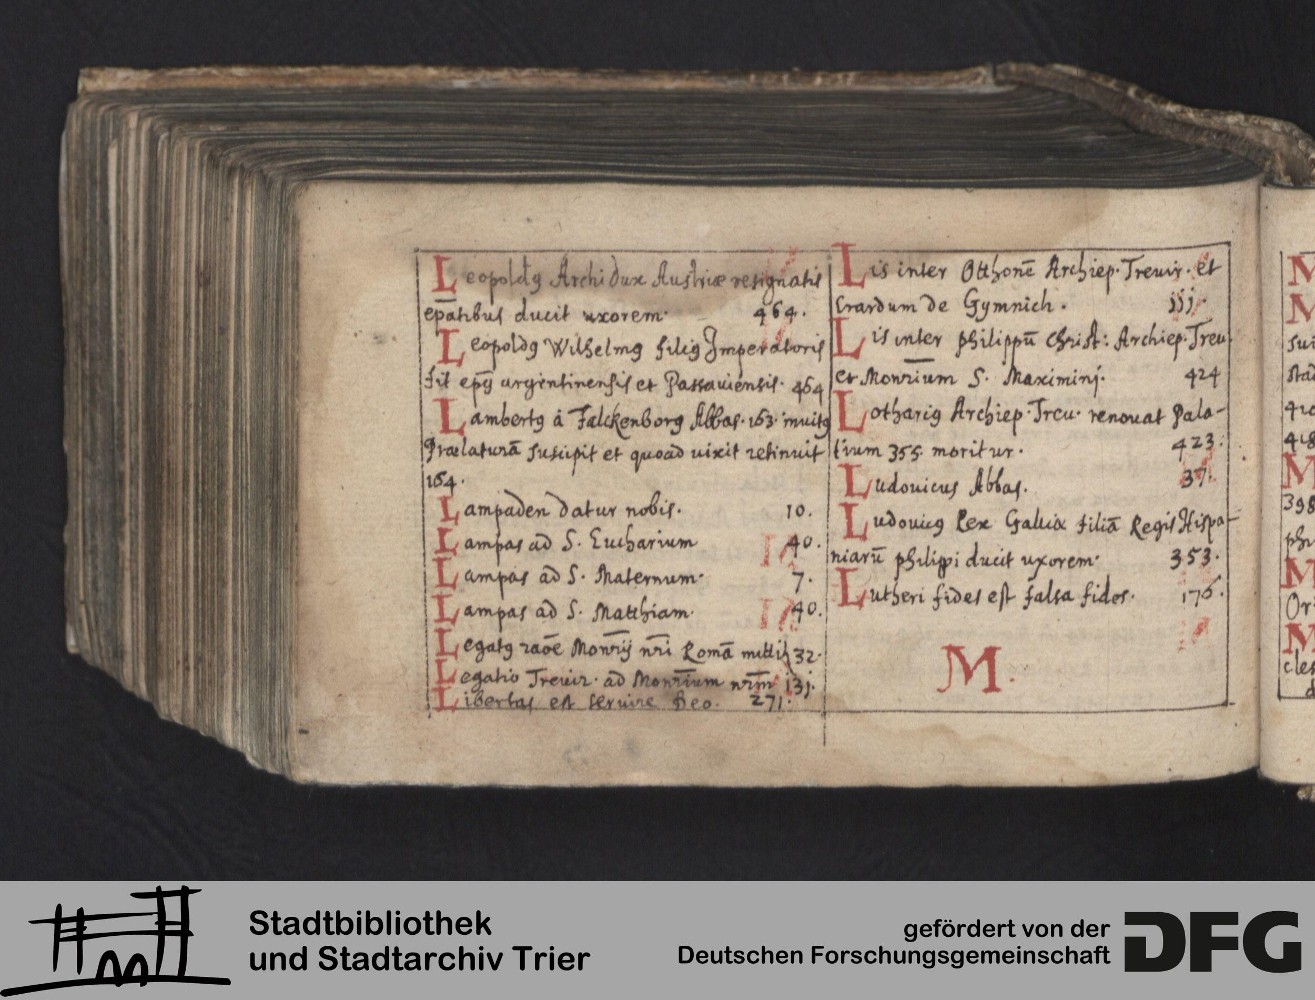 Leopoldꝯ Archidux Austriæ resignatis
epãtibus ducit uxorem. 464.
Leopoldꝯ Wilhelmꝯ filiꝯ Imperatoris
fit epꝯ argentinensis et Passauiensis. 464
Lambertꝯ á Falckenborg Abbas. 163. inuitꝯ
Prælaturã suscipit et quoad uixit retinuit
164.
Lampaden datur nobis. 10.
Lampas ad S. Eucharium 40.
Lampas ad S. Maternum. 7.
Lampas ad S. Matthiam. 40.
Legatꝯ raõe Monrÿ nrĩ Romã mittit 32.
Legatio Treuir. ad Monrium nrm 131.
Libertas est seruire Deo. 271.
Lis inter Otthonẽ Archiep. Treuir. et
Erardum de Gymnich. jjj.
Lis inter philippũ Christ: Archiep. Treu.
et Monrium S. Maximinj. 424
Lothariꝯ Archiep. Treu. renouat Pala-
tium 355. moritur. 423.
Ludouicus Abbas. 37.
Ludouicꝯ Rex Galliæ filiã Regis Hispa-
niarũ philippi ducit uxorem. 353.
Lutheri fides est falsa fides. 176.
M.
M
M
sui
stad
418
M
398
phi
M
Or
M
cles
Stadtbibliothek
und Stadtarchiv Trier
gefördert von der
Deutschen Forschungsgemeinschaft
DFG